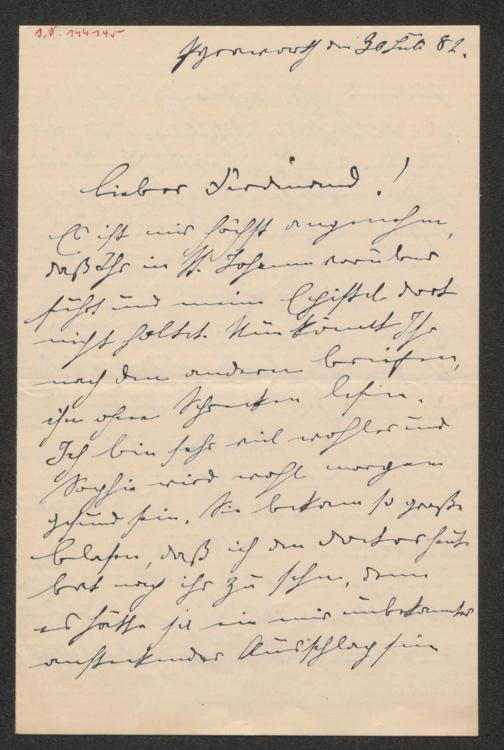 I.N. 144.145
den 30 Juli 82.
Lieber Ferdinand!
Es ist mir höchst angenehm,
daß Ihr in St. Johann vorüber
führt und meine Epistel dort
nicht holtet. Nun könnt Ihr
nach den anderen Briefen,
ihn ohne Schrecken lesen.
Ich bin sehr viel wohler und
Sophie wird wohl morgen
gesund sein. Sie bekam so große
Blasen, daß ich den Doctor heute
bat nach ihr zu sehen, denn
es hätte ja ein mir unbekannter
ansteckender Ausschlag sein